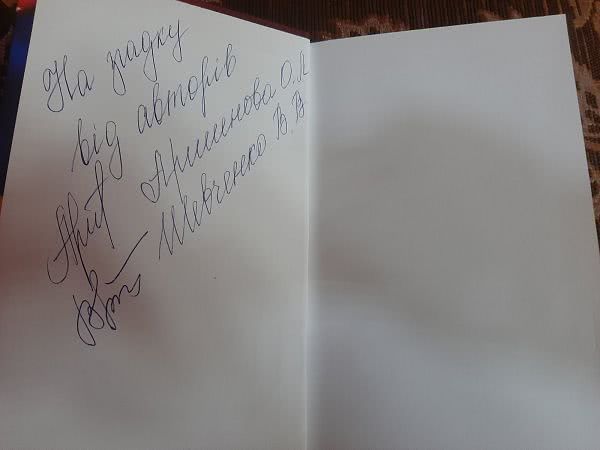 На згадку
від авторів
Аршинова О.Л
Шевченко В.В.